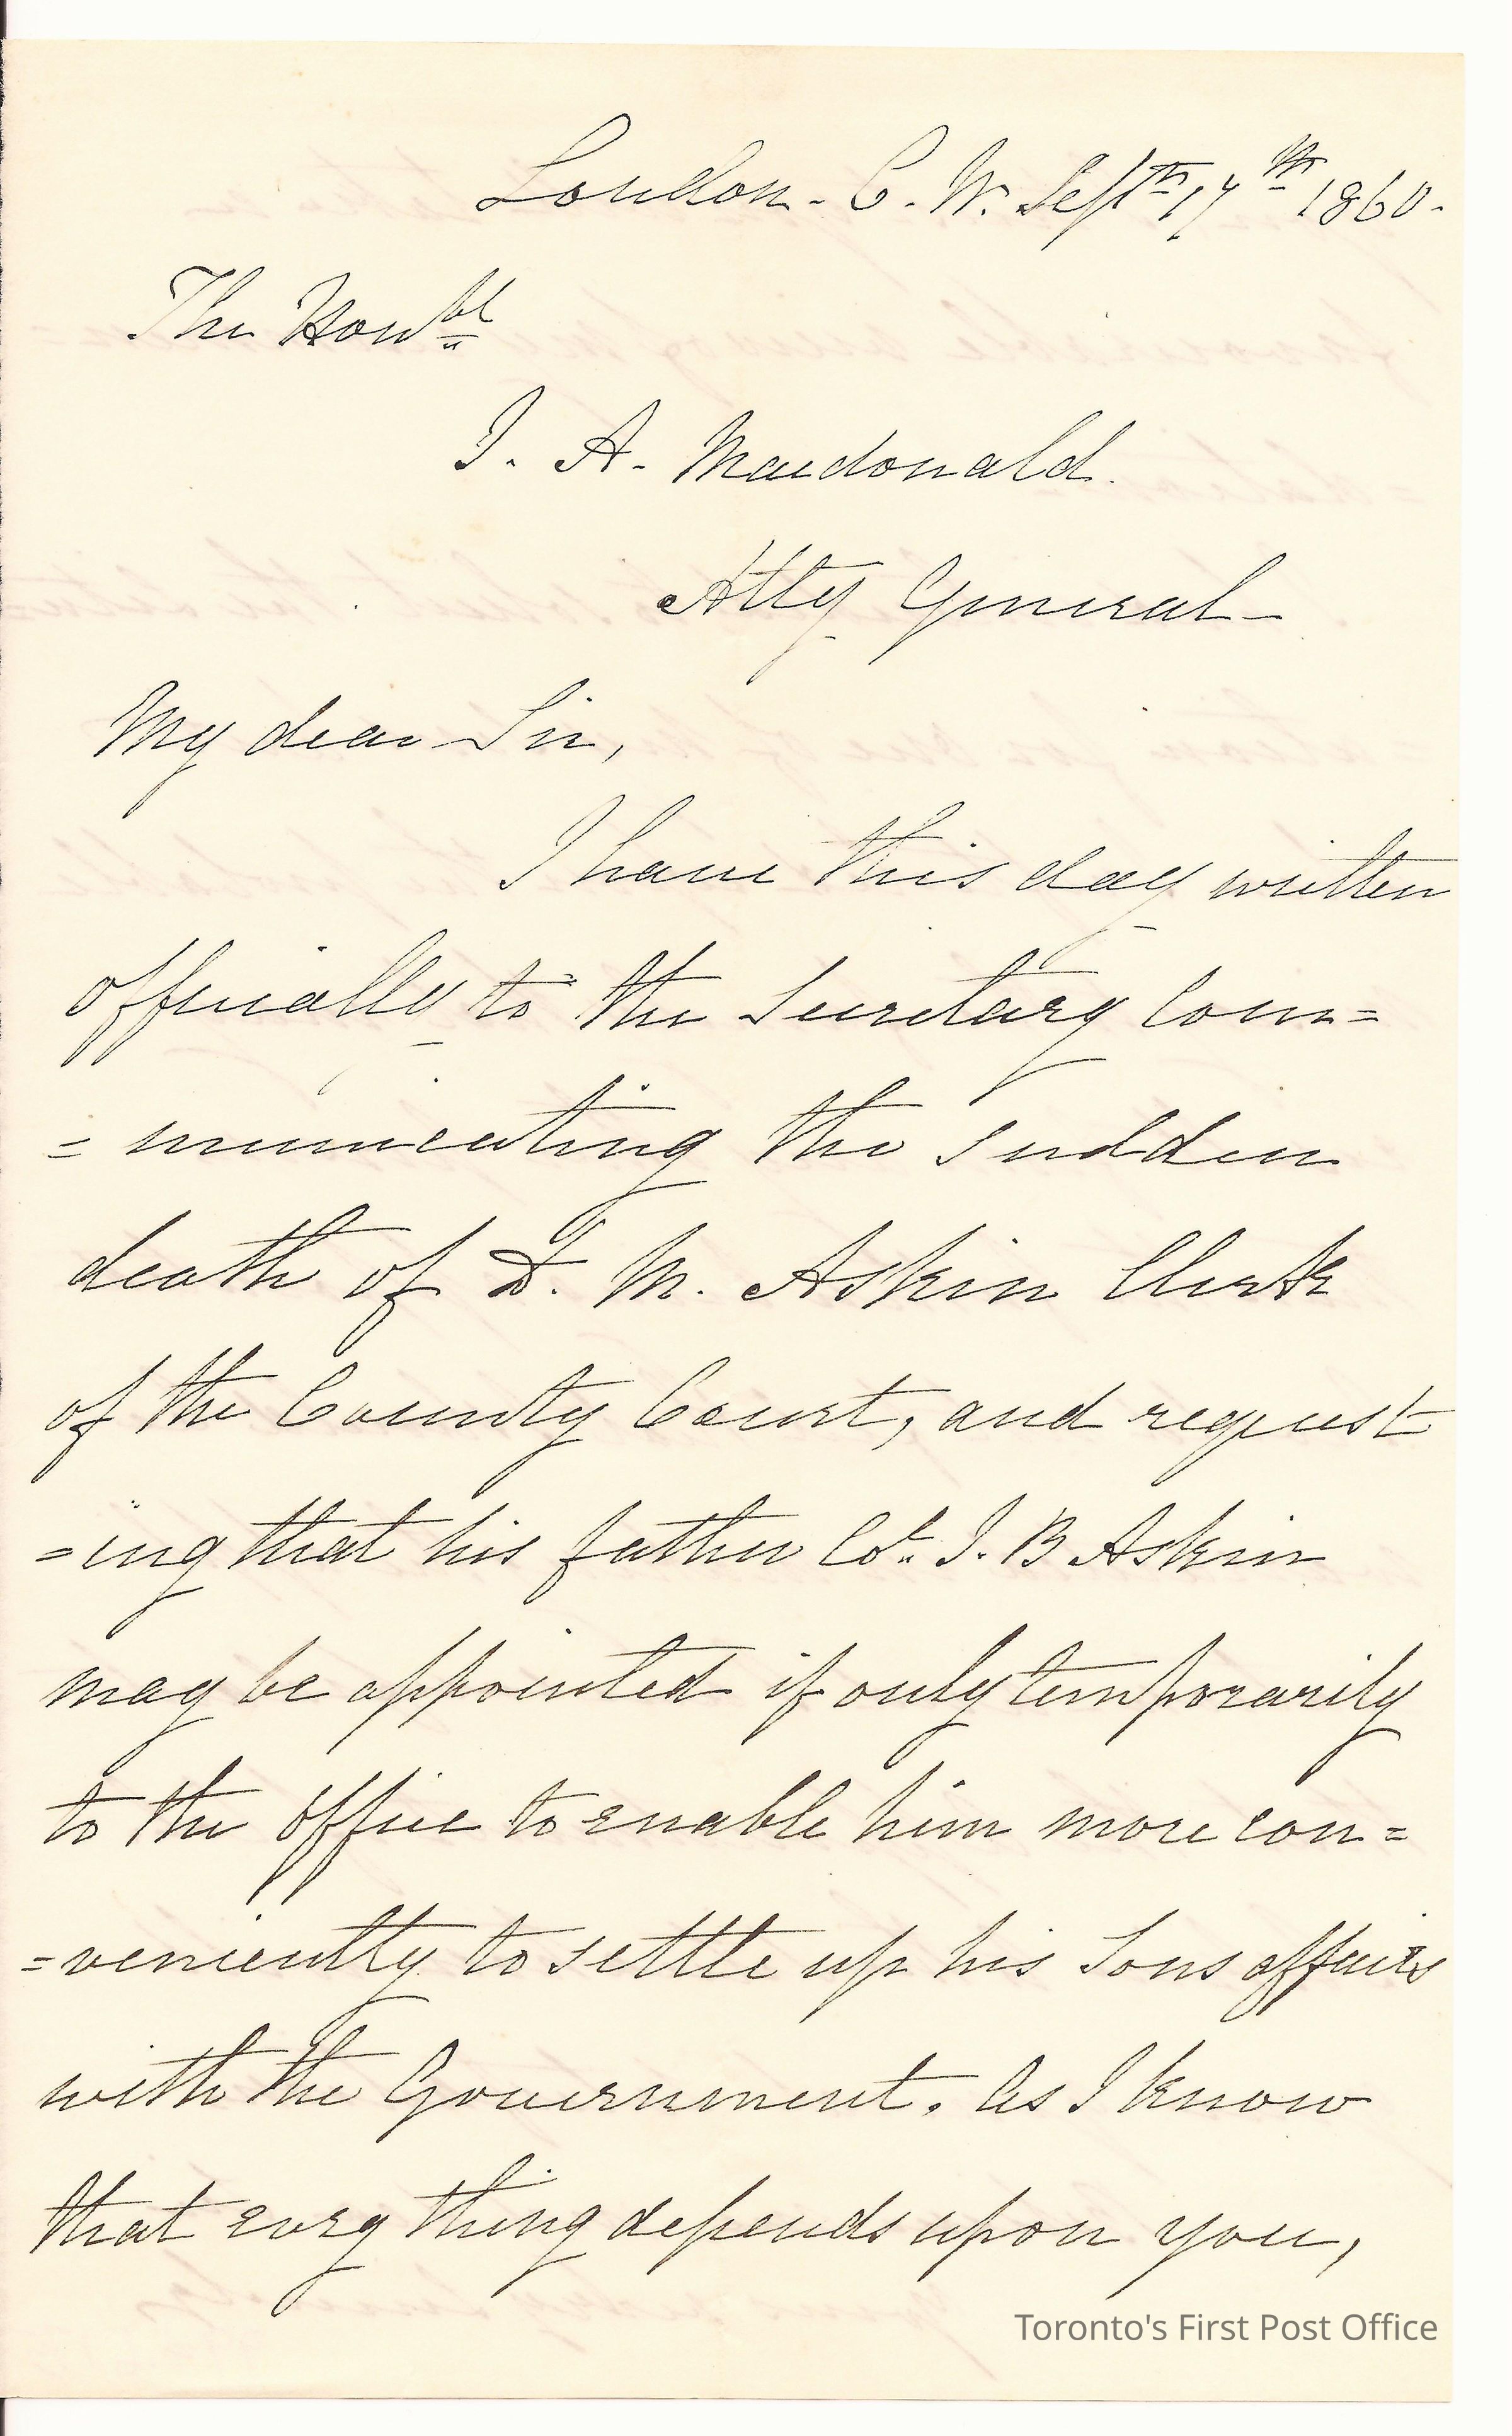 London - C. W. Septr 17th 1860.
The Honbl
J. A. Macdonald.
Atty General -
My dear Sir,
I have this day written
officially to the Secretary Com=
=municating the sudden
death of D. M. Askin Clerk
of the County Court, and request
=ing that his father Col. J. B Askin
may be appointed if only temporarily
to the office to enable him more con=
=veniently to settle up his Sons affairs
with the Government. As I know
that every thing depends upon you,
Toronto's First Post Office